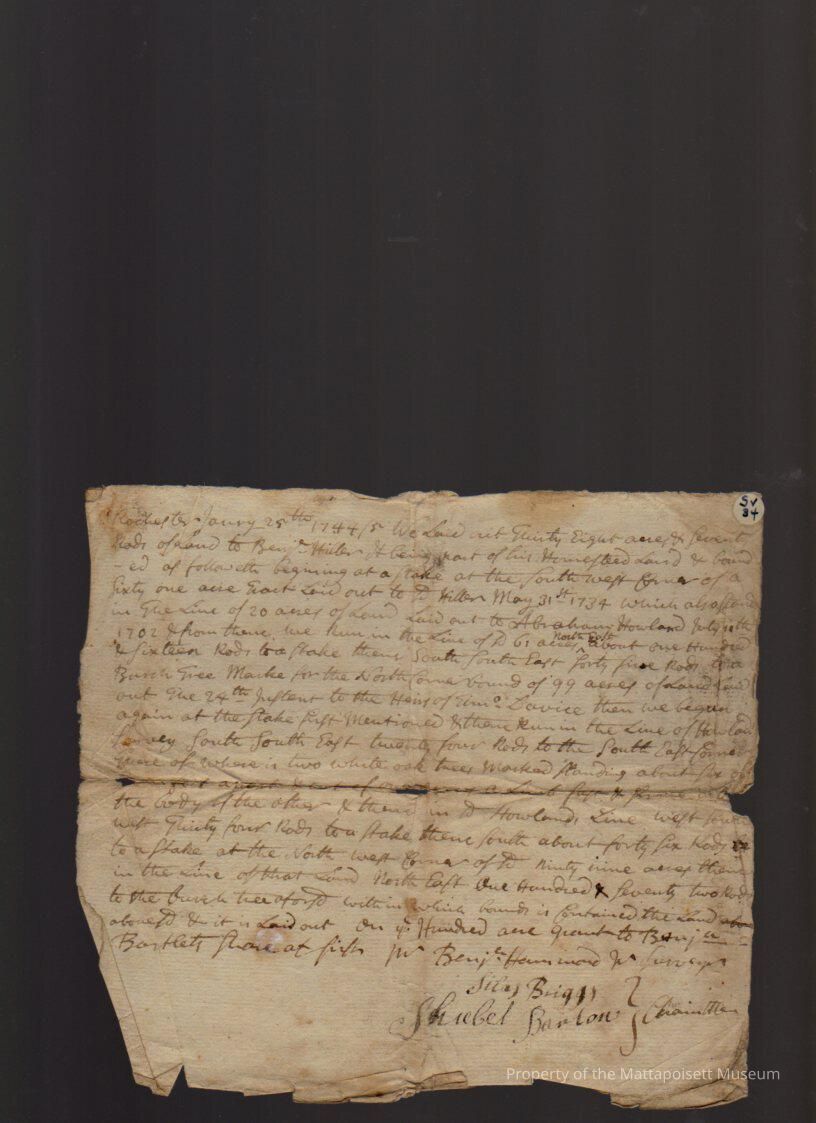 SV
34
Rochester Janry 25th 1744/5 We Laid out Thirty Eight acres & Seventy
Rods of Land to Benja Hiller & being part of his Homesteed Laid & bound
-ed as followeth begining at a Stake at the South west Corner of a
Sixty one acre tract Laid out to Sd Hiller May 31st 1734 which also stands
in The Line of 20 acres of Land Laid out to Abraham Howland July
1702 & from thence We Run in the Line of Sd 61 acres North East about one Hundred
& Sixteen Rods to a Stake thence South South East forty five Rods to a
Burch Tree Marke for the North Corner bound of 99 acres of Land Laid
out The 24th Instent to the Heirs of Davice then we begun
again at the Stake first Mentioned & thence Run in the Line of Howland
Survey South South East twenty four Rods to the South East Corner
there of where is two white oak trees Marked Standing about Six
the body of the other & thence in Sd Howlands Line west South
west Thirty four Rods to a Stake thence South about forty Six Rods
to a Stake at the North west Corner of Sd Ninty nine acres thence
in the Line of that Land North East One Hundred & Seventy two Rods
to the burch tree aforsd within which bounds is Contained the Land
abovesd & it is Laid out On ye Hundred acre grant to Benja
Bartlets Share at first pr Benja Hammond Jr Surveyr
Silas Briggs
Shubel Barlow } Chain Men
Property of the Mattapoisett Museum